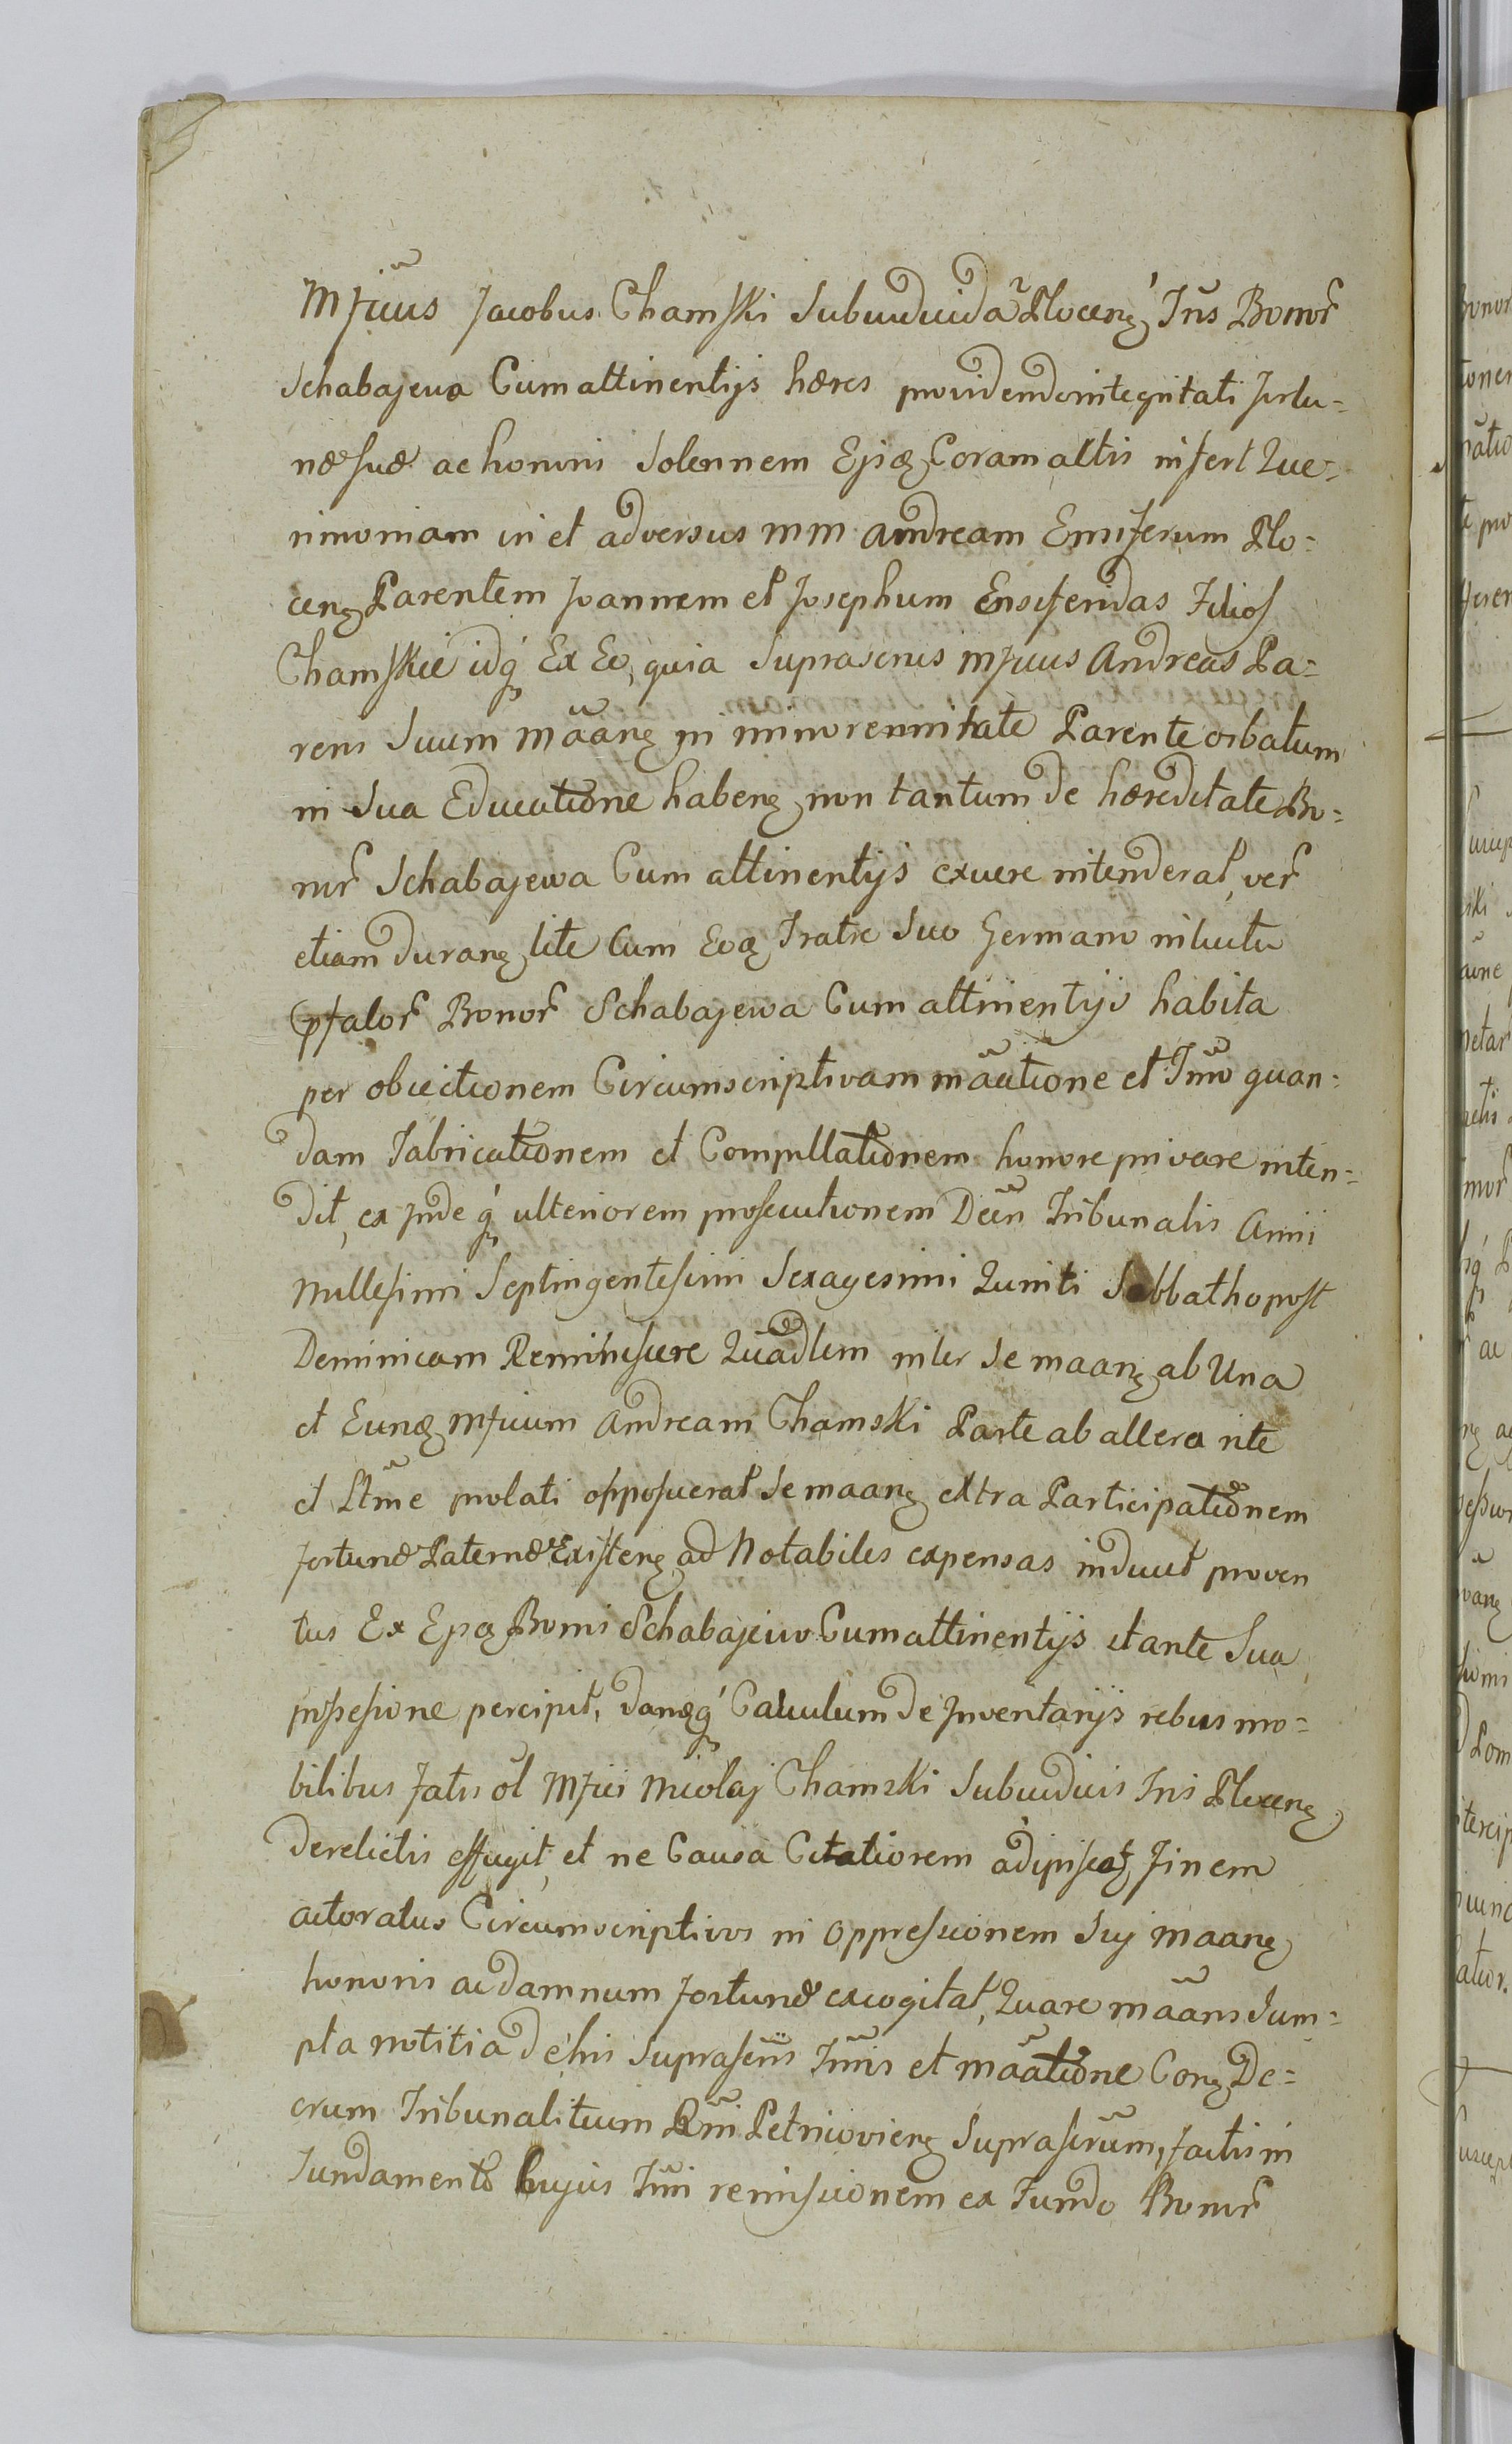 Mfic̃us Jacobus Chamski Subiudicida Plocens Tris Bonor
Schabajewa Cum attinentijs hæres providendo integritati fortu=
næ suæ ac honori Solennem Ejsq Coram actis infert Que=
rimoniam in et adversus MM Andream Ensiferum Plo=
cens Parentem Joannem et Josephum Ensiferidas Filios
Chamskie idq Ex Eo, quia Suprascrius Mficus Andreas Pa=
rens Suum mãans in minorennitate Parente orbatum
in Sua Educatione habens non tantum de hæreditate Bo=
nor Schabajewa Cum attinentijs exuere intenderat, ver
etiam durans lite Cum Eoq Fratre Suo Germano intuitu
pfator Bonor Schabajewa Cum attinentijs habita
per obiectionem Circumscriptivam mãactione et Tmõ quan=
dam Fabricationem et Compillationem honore privare inten=
dit, ex inde q ulteriorem prosecutionem Decñ Tribunalis Anni
Millesimi Septingentesimi Sexagesimi Quinti Sabbatho post
Dominicam Reminiscere Quadlem inter Se maans ab Una
et Eunq Mficum Andream Chamski Parte ab altera rite
et Ltmẽ prolati opposuerat Se maans extra Participationem
fortunæ Paternæ Existens ad Notabiles expensas induxit proven
tus Ex Epsq Bonis Schabajewo Cum attinentijs stante Sua
possesione percipit, dansq Calculum de Inventarijs rebus mo=
bilibus fatis ol Mfici Nicolaj Chamski Subiudicis Tris Plocens
derelictis effugit, et ne Causa Citatiorem adipiscat Finem
actoratus Circumscriptivos in oppressionem Suj maans
honoris ac damnum fortunæ excogitat, Quare mãans Sum=
pta notitia de his Suprascriis Tmis et mãatione Cons De=
crum Tribunalitium Rni Petricoviens Suprascrum, factis in
Fundamento hujus Tmi remissionem ex Fundo Bonor